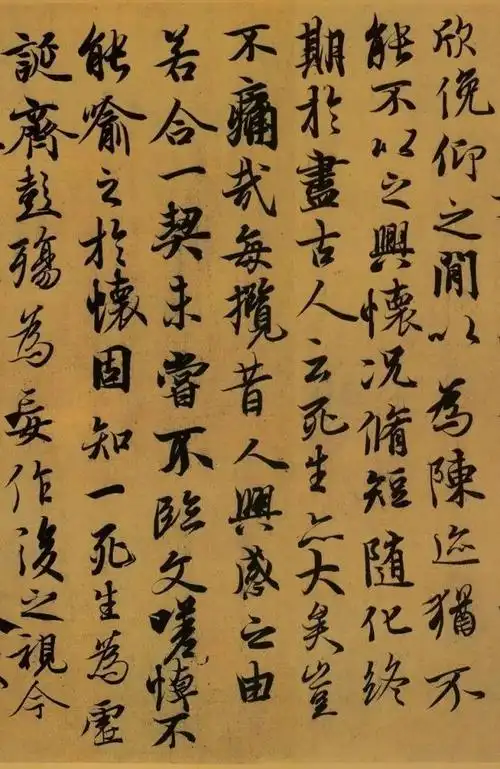 欣俛仰之間以為陳迹猶不
能不以之興懷况脩短随化終
期於盡古人云死生亦大矣豈
不痛哉每攬昔人興感之由
若合一契未嘗不臨文嗟悼不
能喻之於懷固知一死生為虛
誕齊彭殤為妄作後之視今